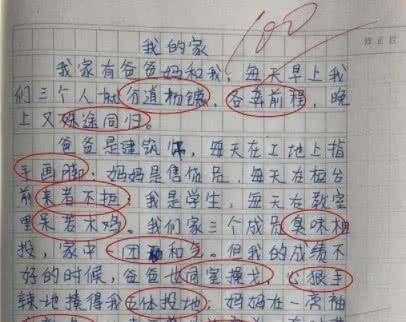 我的家
100
我家有爸爸妈和我，每天早上我
们三个人就分道扬镳，各奔前程，晚
上又殊途同归。
爸爸是建筑师，每天在工地上指
手画脚；妈妈是售货员，每天在柜台
前来者不拒；我是学生，每天在教室
里呆若木鸡。我们家三个成员臭味相
投，家中一团和气。但我的成绩不
好的时候，爸爸也同室操戈，心狠手
辣地揍得我五体投地，妈妈在一旁袖